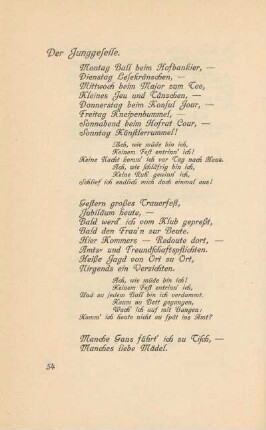 Der Junggeselle.
Montag Ball beim Hofbankier, —
Dienstag Lesekränzchen, —
Mittwoch beim Major zum Tee,
Kleines Jeu und Tänzchen, —
Donnerstag beim Konsul Jour, —
Freitag Kneipenbummel, —
Sonnabend beim Hofrat Cour, —
Sonntag Künstlerrummel!
Ach, wie müde bin ich,
Keinem Fest entrinn' ich!
Keine Nacht komm' ich vor Tag nach Haus.
Ach, wie schläfrig bin ich,
Keine Ruh' gewinn' ich,
Schlief ich endlich mich doch einmal aus!
Gestern großes Trauerfest,
Jubiläum heute, —
Bald werd' ich vom Klub gepreßt,
Bald den Frau'n zur Beute.
Hier Kommers — Redoute dort, —
Amts- und Freundschaftspflichten.
Heiße Jagd von Ort zu Ort,
Nirgends ein Verzichten.
Ach, wie müde bin ich!
Keinem Fest entrinn' ich,
Und zu jedem Ball bin ich verdammt.
Kaum zu Bett gegangen,
Wach' ich auf mit Bangen:
Komm' ich heute nicht zu spät ins Amt?
Manche Gans führt' ich zu Tisch, —
Manches liebe Mädel.
54